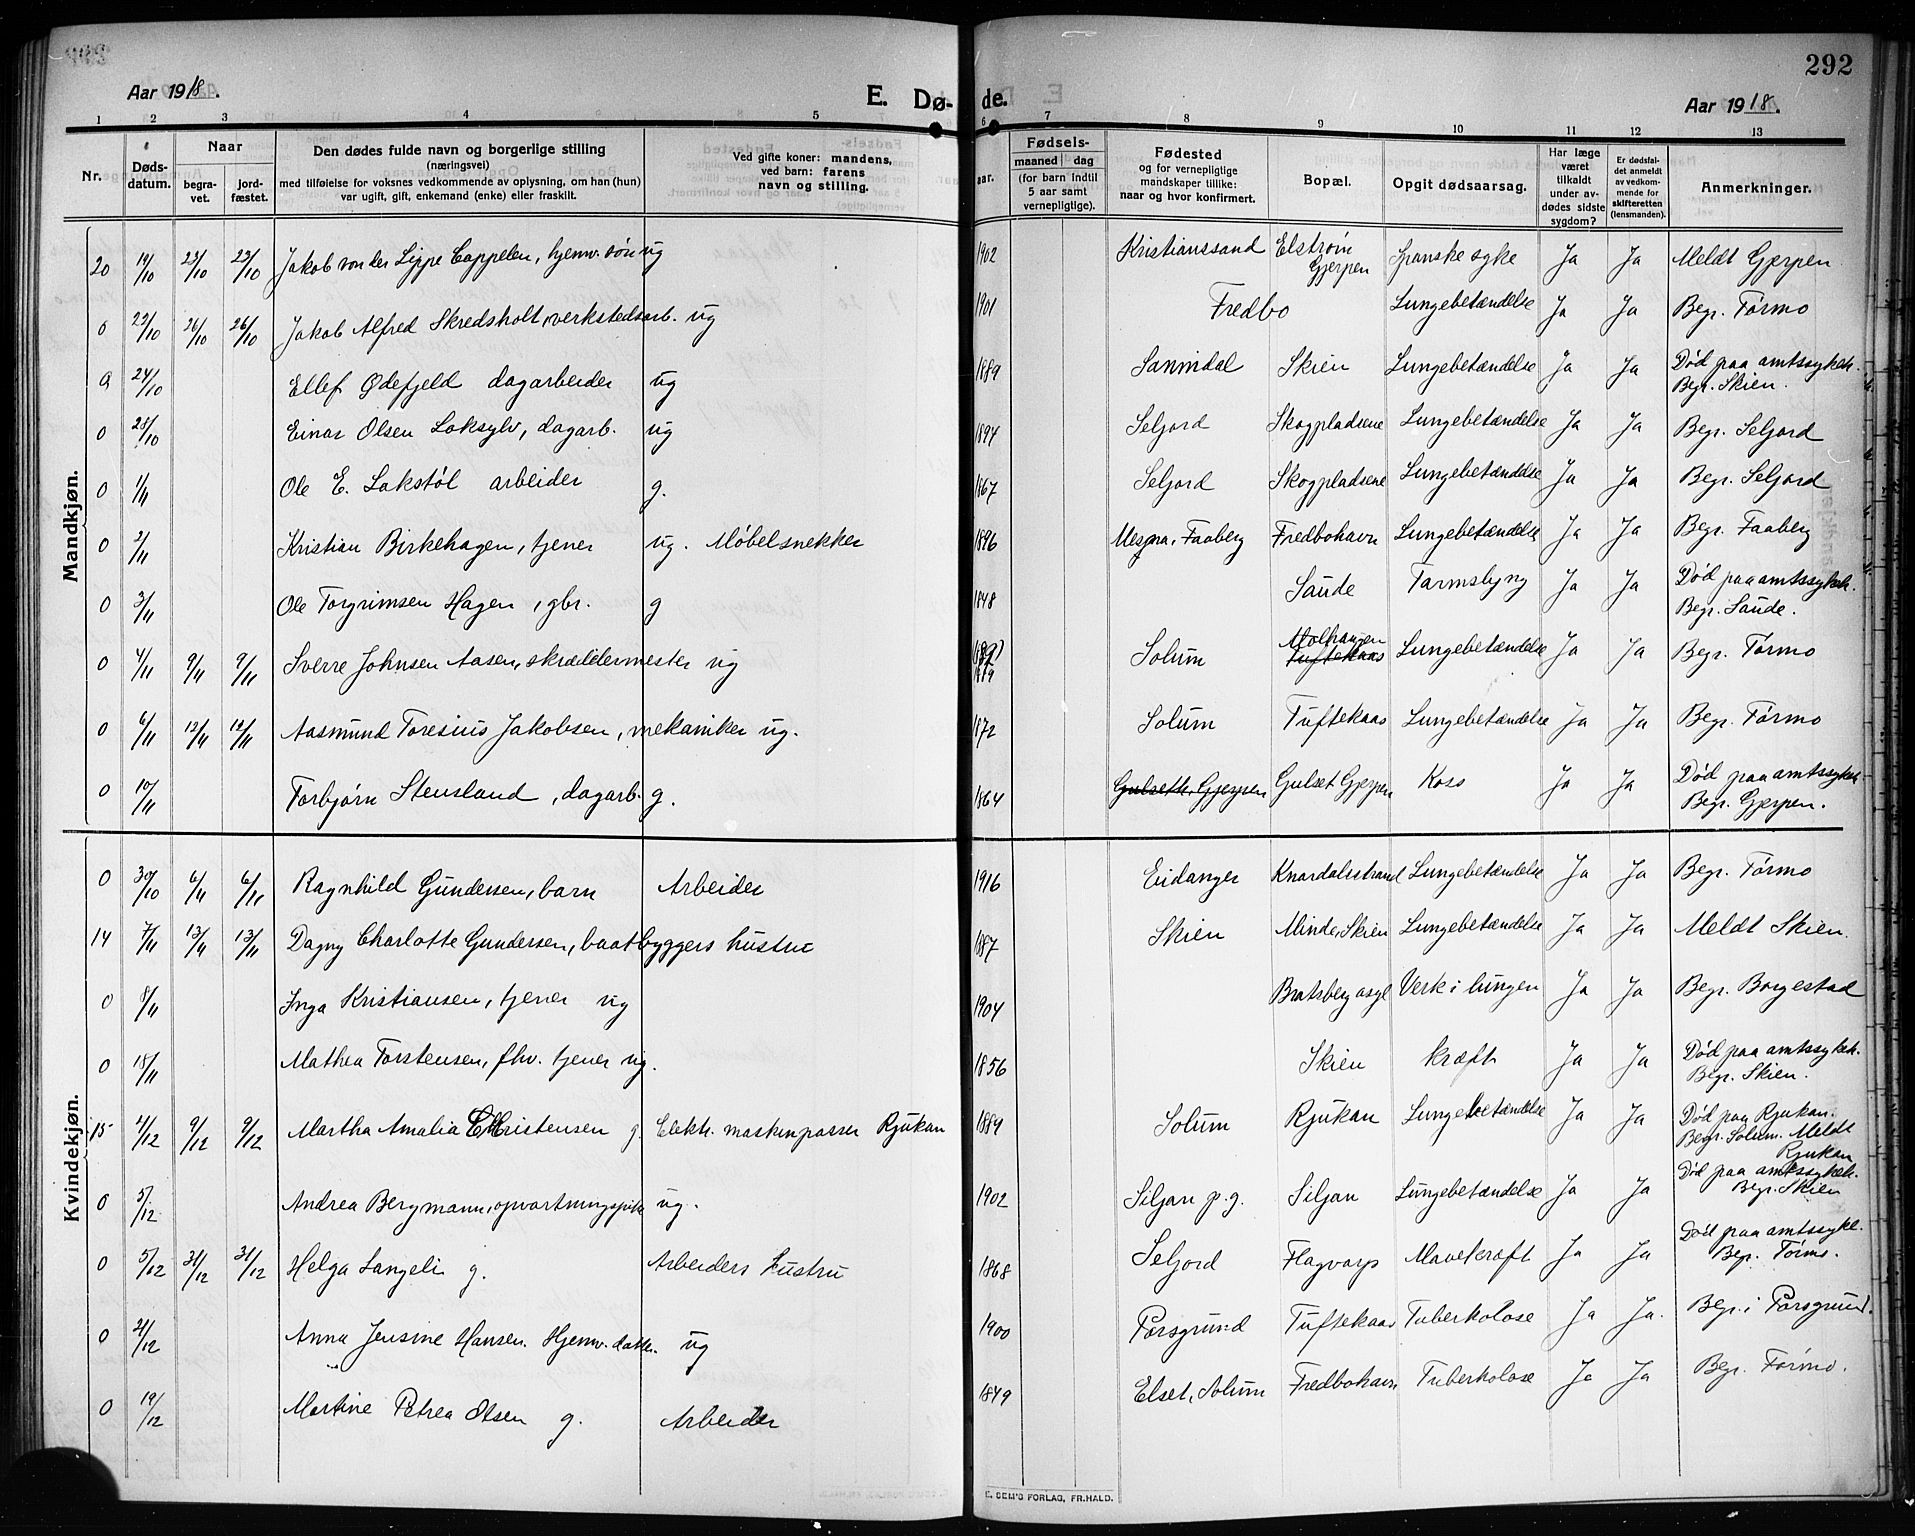 292
Aar 1918.
E. Dø- de.
Aar 1918.
1 2 3 4 5 6 7 8 9 10 11 12 13
Nr.
Døds-
datum.
Naar
begra-
vet.
jord-
fæstet.
Den dødes fulde navn og borgerlige stilling
(næringsvei)
med tilføielse for voksnes vedkommende av oplysning, om han (hun)
var ugift, gift, enkemand (enke) eller fraskilt.
Ved gifte koner: mandens,
ved barn: farens
navn og stilling.
aar.
Fødsels-
maaned dag
(for barn indtil
5 aar samt
vernepligtige).
Fødested
og for vernepligtige
mandskaper tillike:
naar og hvor konfirmert.
Bopæl.
Opgit dødsaarsag.
Har læge
været
tilkaldt
under av-
dødes sidste
sygdom?
Er dødsfal-
det anmeldt
av vedkom-
mende for
skifteretten
(lensmanden).
Anmerkninger.
Mandkjøn.
20 19/10 23/10 23/10 Jakob von der Lippe Cappelen, hjemv. søn ug 1902 Kristianssand Elstrøm Gjerpen Spanske syke Ja Ja Meldt Gjerpen
0 22/10 26/10 26/10 Jakob Alfred Skredsholt, verkstedsarb. ug 1901 Fredbo Lungebetændelse Ja Ja Begr. Tørmo
0 24/10 Ellef Ødefjeld dagarbeider ug 1889 Sannidal Skien Lungebetændelse Ja Ja Død paa amtssykeh.
Begr. Skien.
0 28/10 Einar Olsen Loksylv, dagarb. ug 1897 Seljord Skogpladsene Lungebetændelse Ja Ja Begr. Seljord
0 1/11 Ole E. Lakstøl arbeider g. 1867 Seljord Skogpladsene Lungebetændelse Ja Ja Begr. Seljord
0 2/11 Kristian Birkehagen, tjener ug. Møbelsnekker 1896 Mesna, Faaberg Fredbohavn Lungebetændelse Ja Ja Begr. Faaberg
0 3/11 Ole Torgrimsen Hagen, gbr. g 1848 Saude Tarmslyng Ja Ja Død paa amtssykeh.
Begr. Saude.
0 4/11 9/11 9/11 Sverre Johnsen Aasen, skræddermester ug Solum Tuftekaas Lungebetændelse Ja Ja Begr. Tørmo
0 6/11 12/11 12/11 Aasmund Toresius Jakobsen, mekaniker ug. 1872 Solum Tuftekaas Lungebetændelse Ja Ja Begr. Tørmo
0 10/11 Torbjørn Stensland, dagarb. g. 1864 Gulseth, Gjerpen Gulset Gjerpen Ja Ja Død paa amtssykeh.
Begr. Gjerpen.
Kvindekjøn.
0 30/10 6/11 6/11 Ragnhild Gundersen, barn Arbeider 1916 Eidanger Knardalsstrand Lungebetændelse Ja Ja Begr. Tørmo
14 7/11 13/11 13/11 Dagny Charlotte Gundersen, baatbyggers hustru 1887 Skien Minde, Skien Lungebetændelse Ja Ja Meldt Skien.
0 8/11 Inga Kristiansen, tjener ug 1904 Bratsberg asyl Verk i lungen Ja Ja Begr. Borgestad
0 18/11 Mathea Torstensen, fhv. tjener ug. 1856 Skien kræft Ja Ja Død paa amtssykeh.
Begr. Skien.
15 4/12 9/12 9/12 Martha Amalia Christensen g. Elektr. maskenpasser Rjukan 1884 Solum Rjukan Lungebetændelse Ja Ja Død paa Rjukan.
Begr. Solum. Meldt
Rjukan
0 5/12 Andrea Bergmann, opvartningspike ug. 1902 Siljan p.g. Siljan Lungebetændelse Ja Ja Død paa amtssykeh.
Begr. Skien
0 5/12 31/12 31/12 Helga Langeli g. Arbeiders hustru 1868 Seljord Flagvarp Mavekræft Ja Ja Død paa amtssykeh.
Begr. Tørmo.
0 21/12 Anna Jensine Hansen. Hjemv. datter. ug 1900 Porsgrund Tuftekaas Tuberkolose Ja Ja. Begr. i Porsgrund.
0 19/12 Martine Petrea Olsen g. Arbeider 1849 Elset, Solum Fredbohavn Tuberkolose Ja Ja Begr. Tørmo.
E. SEM'S FORLAG, FR.HALD.